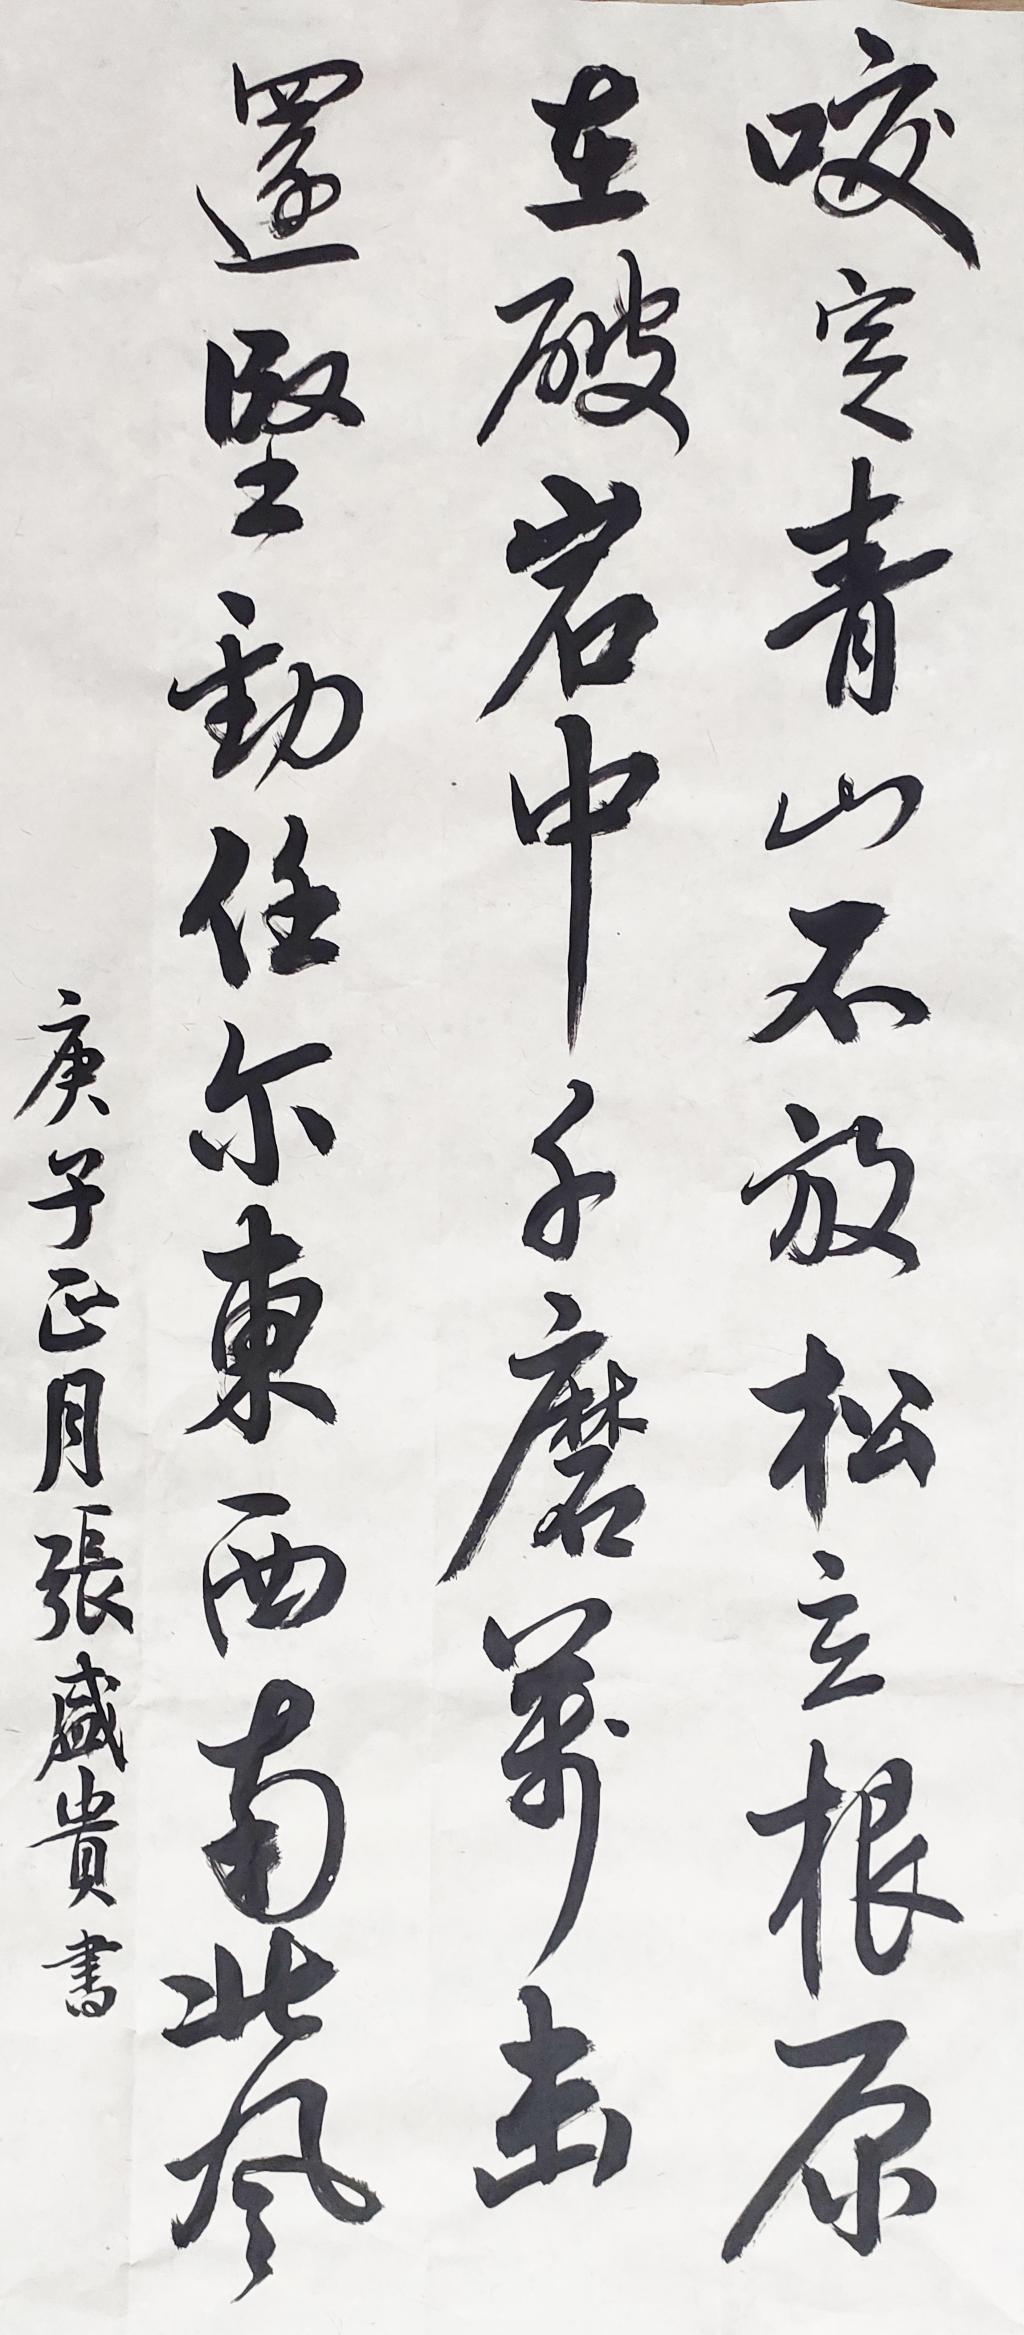 咬定青山不放松立根原
在破岩中千磨萬击
還堅勁任尔東西南北风
庚子正月張盛貴書